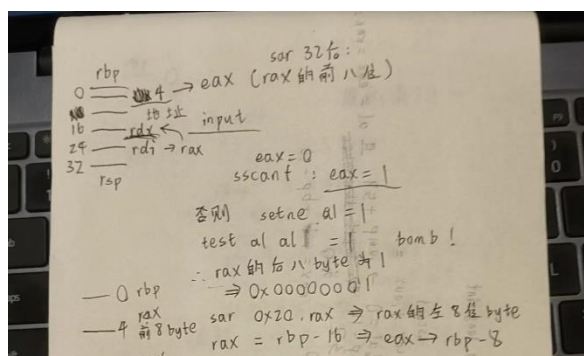 sar 32后:
rbp
0 4 → eax (rax的前八位)
地址
16 rdx ← input
24 rdi → rax
32
rsp
eax = 0
sscanf : eax = 1
否则 setne al = 1
test al al = 1 bomb!
∴ rax的后八byte为1
0 rbp ⇒ 0x00000001
rax
4 前8byte sar 0x20, rax ⇒ rax的左8位byte
rax = rbp-16 ⇒ eax → rbp-8